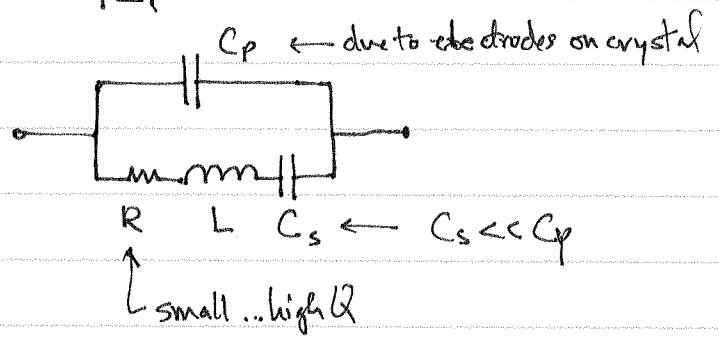 Cp ← due to electrodes on crystal
R L Cs ← Cs << Cp
small ... high Q